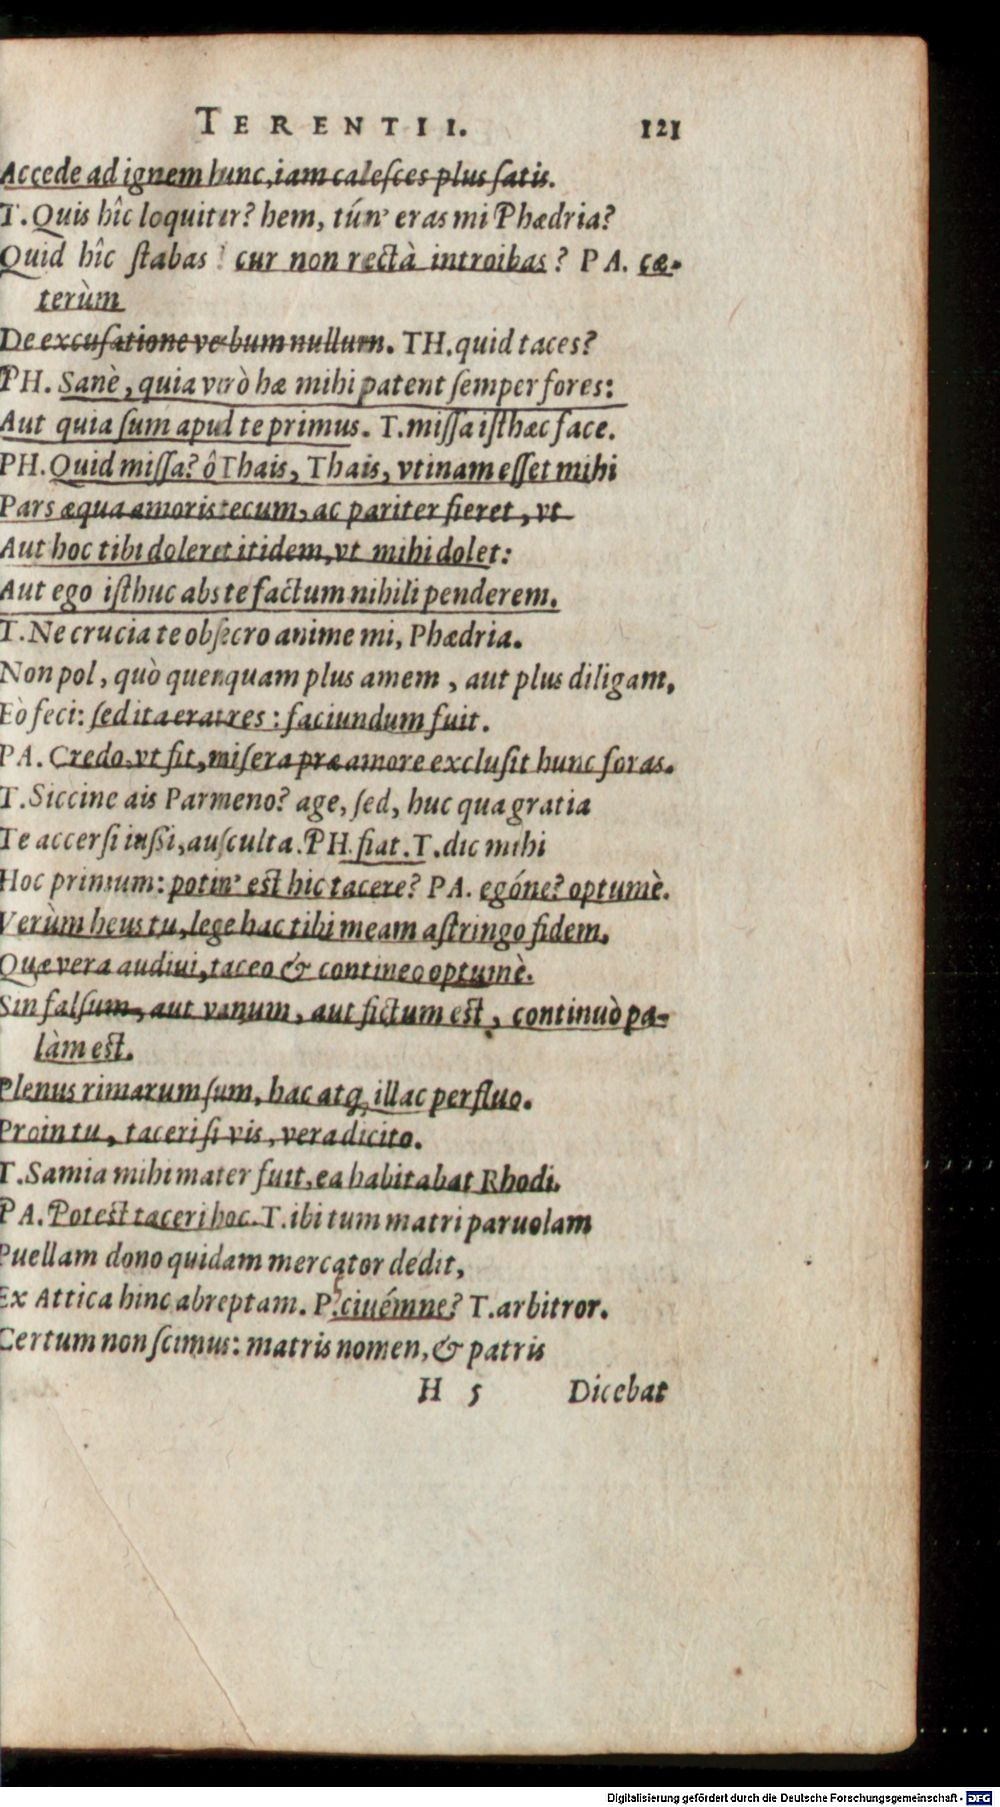 TERENTII. 121
Accede ad ignem hunc, iam calesces plus satis.
T. Quis hîc loquitur? hem, tún' eras mi Phædria?
Quid hîc stabas? cur non rectà introibas? PA. cæ-
terùm
De excusatione verbum nullum. TH. quid taces?
PH. Sanè, quia verò hæ mihi patent semper fores:
Aut quia sum apud te primus. T. missa isthæc face.
PH. Quid missa? ô Thais, Thais, vtinam esset mihi
Pars æqua amoris tecum, ac pariter fieret, vt
Aut hoc tibi doleret itidem, vt mihi dolet:
Aut ego isthuc abs te factum nihili penderem.
T. Ne crucia te obsecro anime mi, Phædria.
Non pol, quò quenquam plus amem, aut plus diligam,
Eò feci: sed ita erat res: faciundum fuit.
PA. Credo, vt fit, misera præ amore exclusit hunc foras.
T. Siccine ais Parmeno? age, sed, huc qua gratia
Te accersi iussi, ausculta. PH. fiat. T. dic mihi
Hoc primum: potin' est hic tacere? PA. egóne? optumè.
Verùm heus tu, lege hac tibi meam astringo fidem,
Quæ vera audiui, taceo & contineo optumè.
Sin falsum, aut vanum, aut fictum est, continuò pa-
làm est.
Plenus rimarum sum, hac atq; illac perfluo.
Proin tu, taceri si vis, vera dicito.
T. Samia mihi mater fuit, ea habitabat Rhodi.
PA. Potest taceri hoc. T. ibi tum matri paruolam
Puellam dono quidam mercator dedit,
Ex Attica hinc abreptam. P. ciuémne? T. arbitror.
Certum non scimus: matris nomen, & patris
H 5 Dicebat
Digitalisierung gefördert durch die Deutsche Forschungsgemeinschaft - DFG